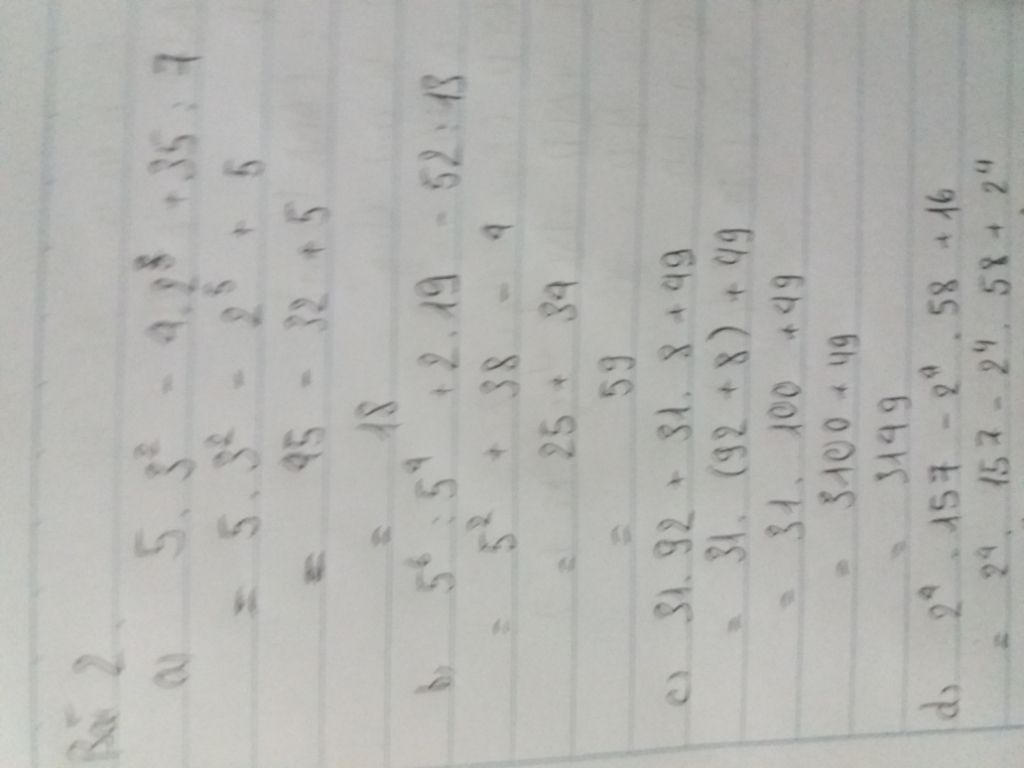 Bài 2.
a) 5 . 3² - 4 . 2³ + 35 : 7
= 5 . 3² - 2⁵ + 5
= 45 - 32 + 5
= 18
b) 5⁶ : 5⁴ + 2 . 19 - 52 : 13
= 5² + 38 - 4
= 25 + 34
= 59
c) 31 . 92 + 31 . 8 + 49
= 31 . (92 + 8) + 49
= 31 . 100 + 49
= 3100 + 49
= 3149
d) 2⁴ . 157 - 2⁴ . 58 + 16
= 2⁴ . 157 - 2⁴ . 58 + 2⁴